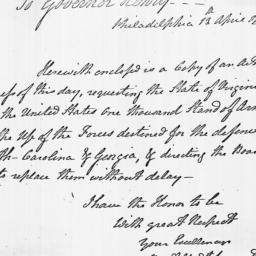 To Governor
Philadelphia 13th April
Herewith enclosed is a Copy of an Act
of this day, requesting the State of Virginia
the United States One thousand Stand of Arm
the Use of the Forces destined for the defence
th-Carolina & Georgia, & directing the Boa
to replace them without delay—
I have the Honor to be
With great Respect
Your Excellencys